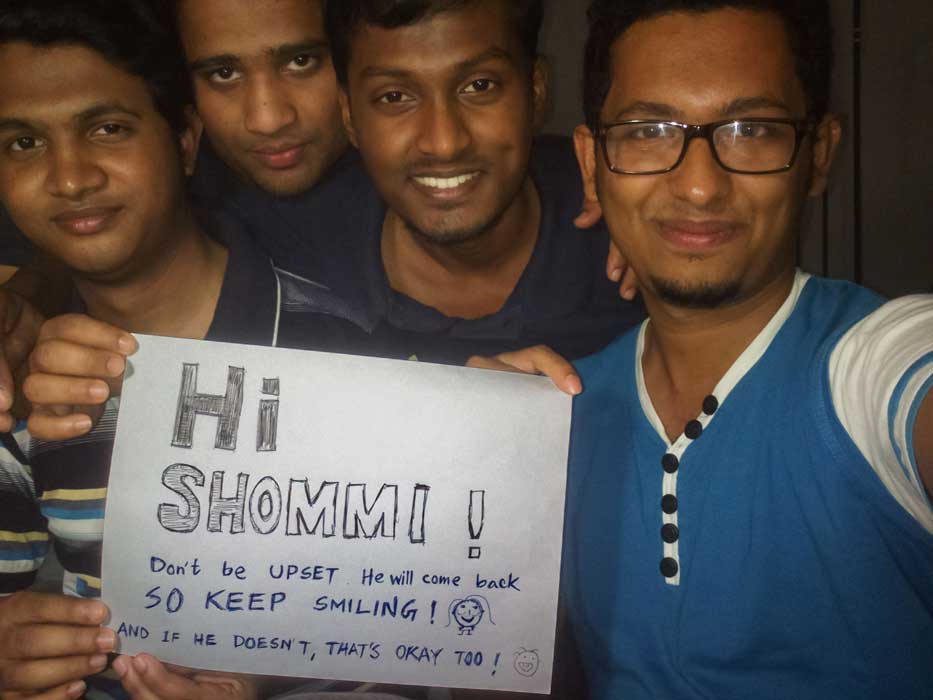 Hi
SHOMMI !
Don't be UPSET. He will come back
SO KEEP SMILING!
AND IF HE DOESN'T, THAT'S OKAY TOO !